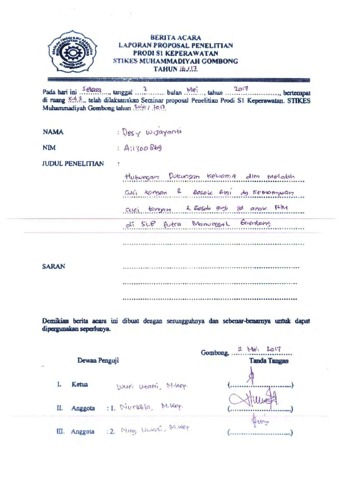 BERITA ACARA
LAPORAN PROPOSAL PENELITIAN
PRODI S1 KEPERAWATAN
STIKES MUHAMMADIYAH GOMBONG
TAHUN
Pada hari ini Selasa, tanggal 2 bulan Mei, tahun 2017, bertempat
di ruang, telah dilaksanakan Seminar proposal Penelitian Prodi S1 Keperawatan. STIKES
Muhammadiyah Gombong tahun
NAMA : Desy Wijayanti
NIM :
JUDUL PENELITIAN :
Hubungan Dukungan Keluarga dlm melatih
cuci tangan & gosok gigi dg kemampuan
cuci tangan & gosok gigi pd anak
di SLB Putra Manunggal Gombong
SARAN
Demikian berita acara ini dibuat dengan sesungguhnya dan sebenar-benarnya untuk dapat
dipergunakan seperlunya.
Gombong, 2 Mei 2017
Dewan Penguji Tanda Tangan
I. Ketua Wuri Utami, M.Kep (
II. Anggota : 1. Nurlaila, M.Kep (
III. Anggota : 2. Ning Iswati, M.Kep (